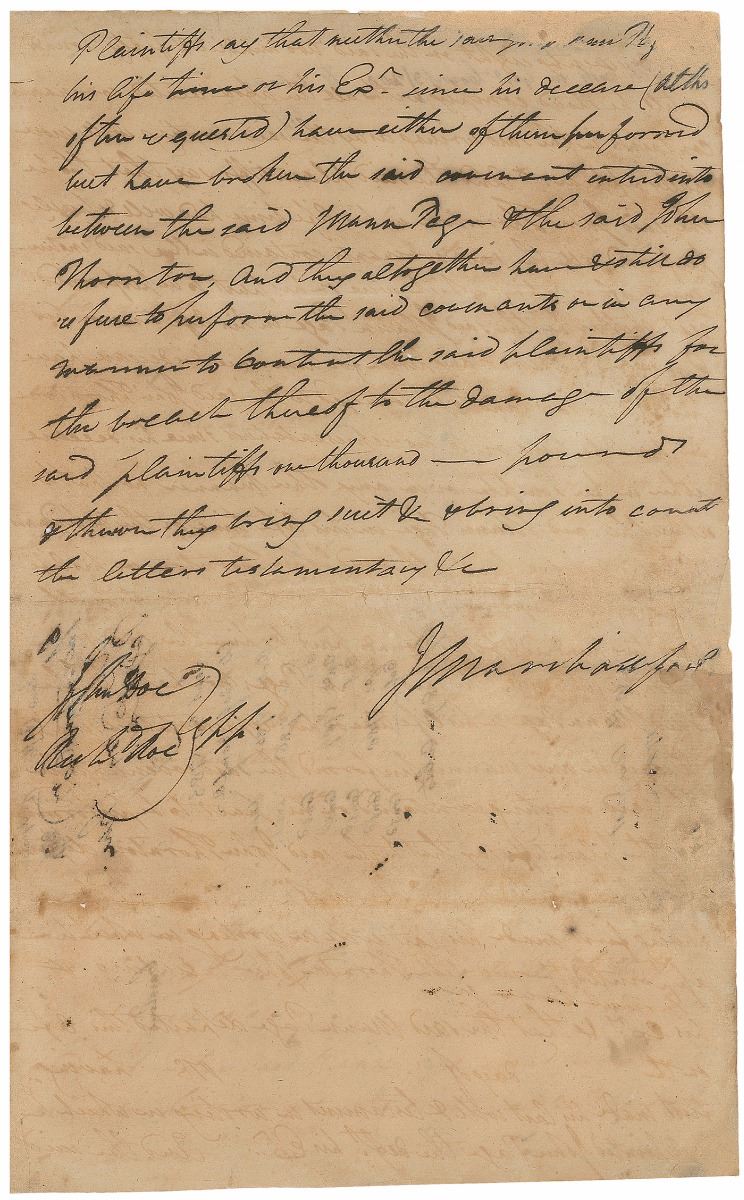 Plaintiffs say that neither the said
his life time or his Exr. since his decease (altho
often requested) have either of them performed
but have broken the said covenant entered into
between the said Mann Page & the said John
Thornton, And they altogether have & still do
refuse to perform the said covenants or in any
manner to the said plaintiffs for
the breach thereof to the damage of the
said plaintiffs one thousand — pounds
& thereon they bring suit & & bring into court
the letters testamentary &c
J Marshall for
John Doe
Richd Roe